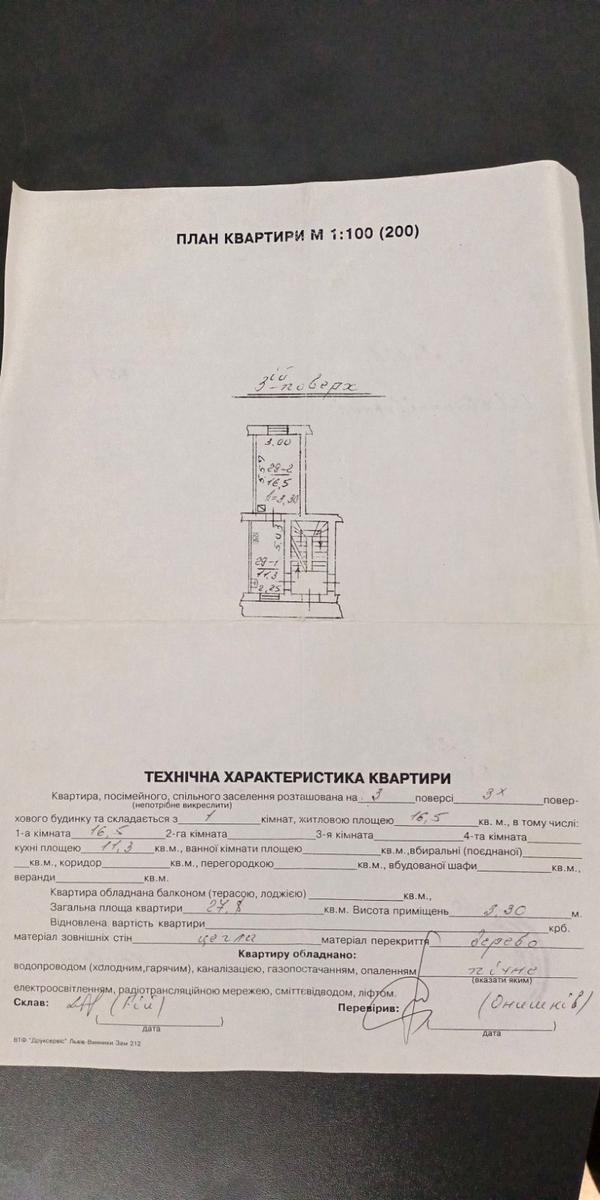 ПЛАН КВАРТИРИ М 1:100 (200)
3ій-поверх
3,00
5,57
29-2
16,5
h=3,30
5,03
29-1
11,3
2,25
ТЕХНІЧНА ХАРАКТЕРИСТИКА КВАРТИРИ
Квартира, посімейного, спільного заселення розташована на 3 поверсі 3х повер-
(непотрібне викреслити)
хового будинку та складається з 1 кімнат, житловою площею 16,5 кв. м., в тому числі:
1-а кімната 16,5 2-га кімната 3-я кімната 4-та кімната
кухні площею 11,3 кв.м., ванної кімнати площею кв.м.,вбиральні (поєднаної)
кв.м., коридор кв.м., перегородкою кв.м., вбудованої шафи кв.м.,
веранди кв.м.
Квартира обладнана балконом (терасою, лоджією) кв.м.,
Загальна площа квартири 27,8 кв.м. Висота приміщень 3,30 м.
Відновлена вартість квартири крб.
матеріал зовнішніх стін цегла матеріал перекриття дерево
Квартиру обладнано:
водопроводом (холодним,гарячим), каналізацією, газопостачанням, опаленням пічне
(вказати яким)
електроосвітленням, радіотрансляційною мережею, сміттєвідводом, ліфтом.
Склав: (Рій) Перевірив: (Онишків)
дата дата
ВТФ "Друксервіс" Львів-Винники Зам 212